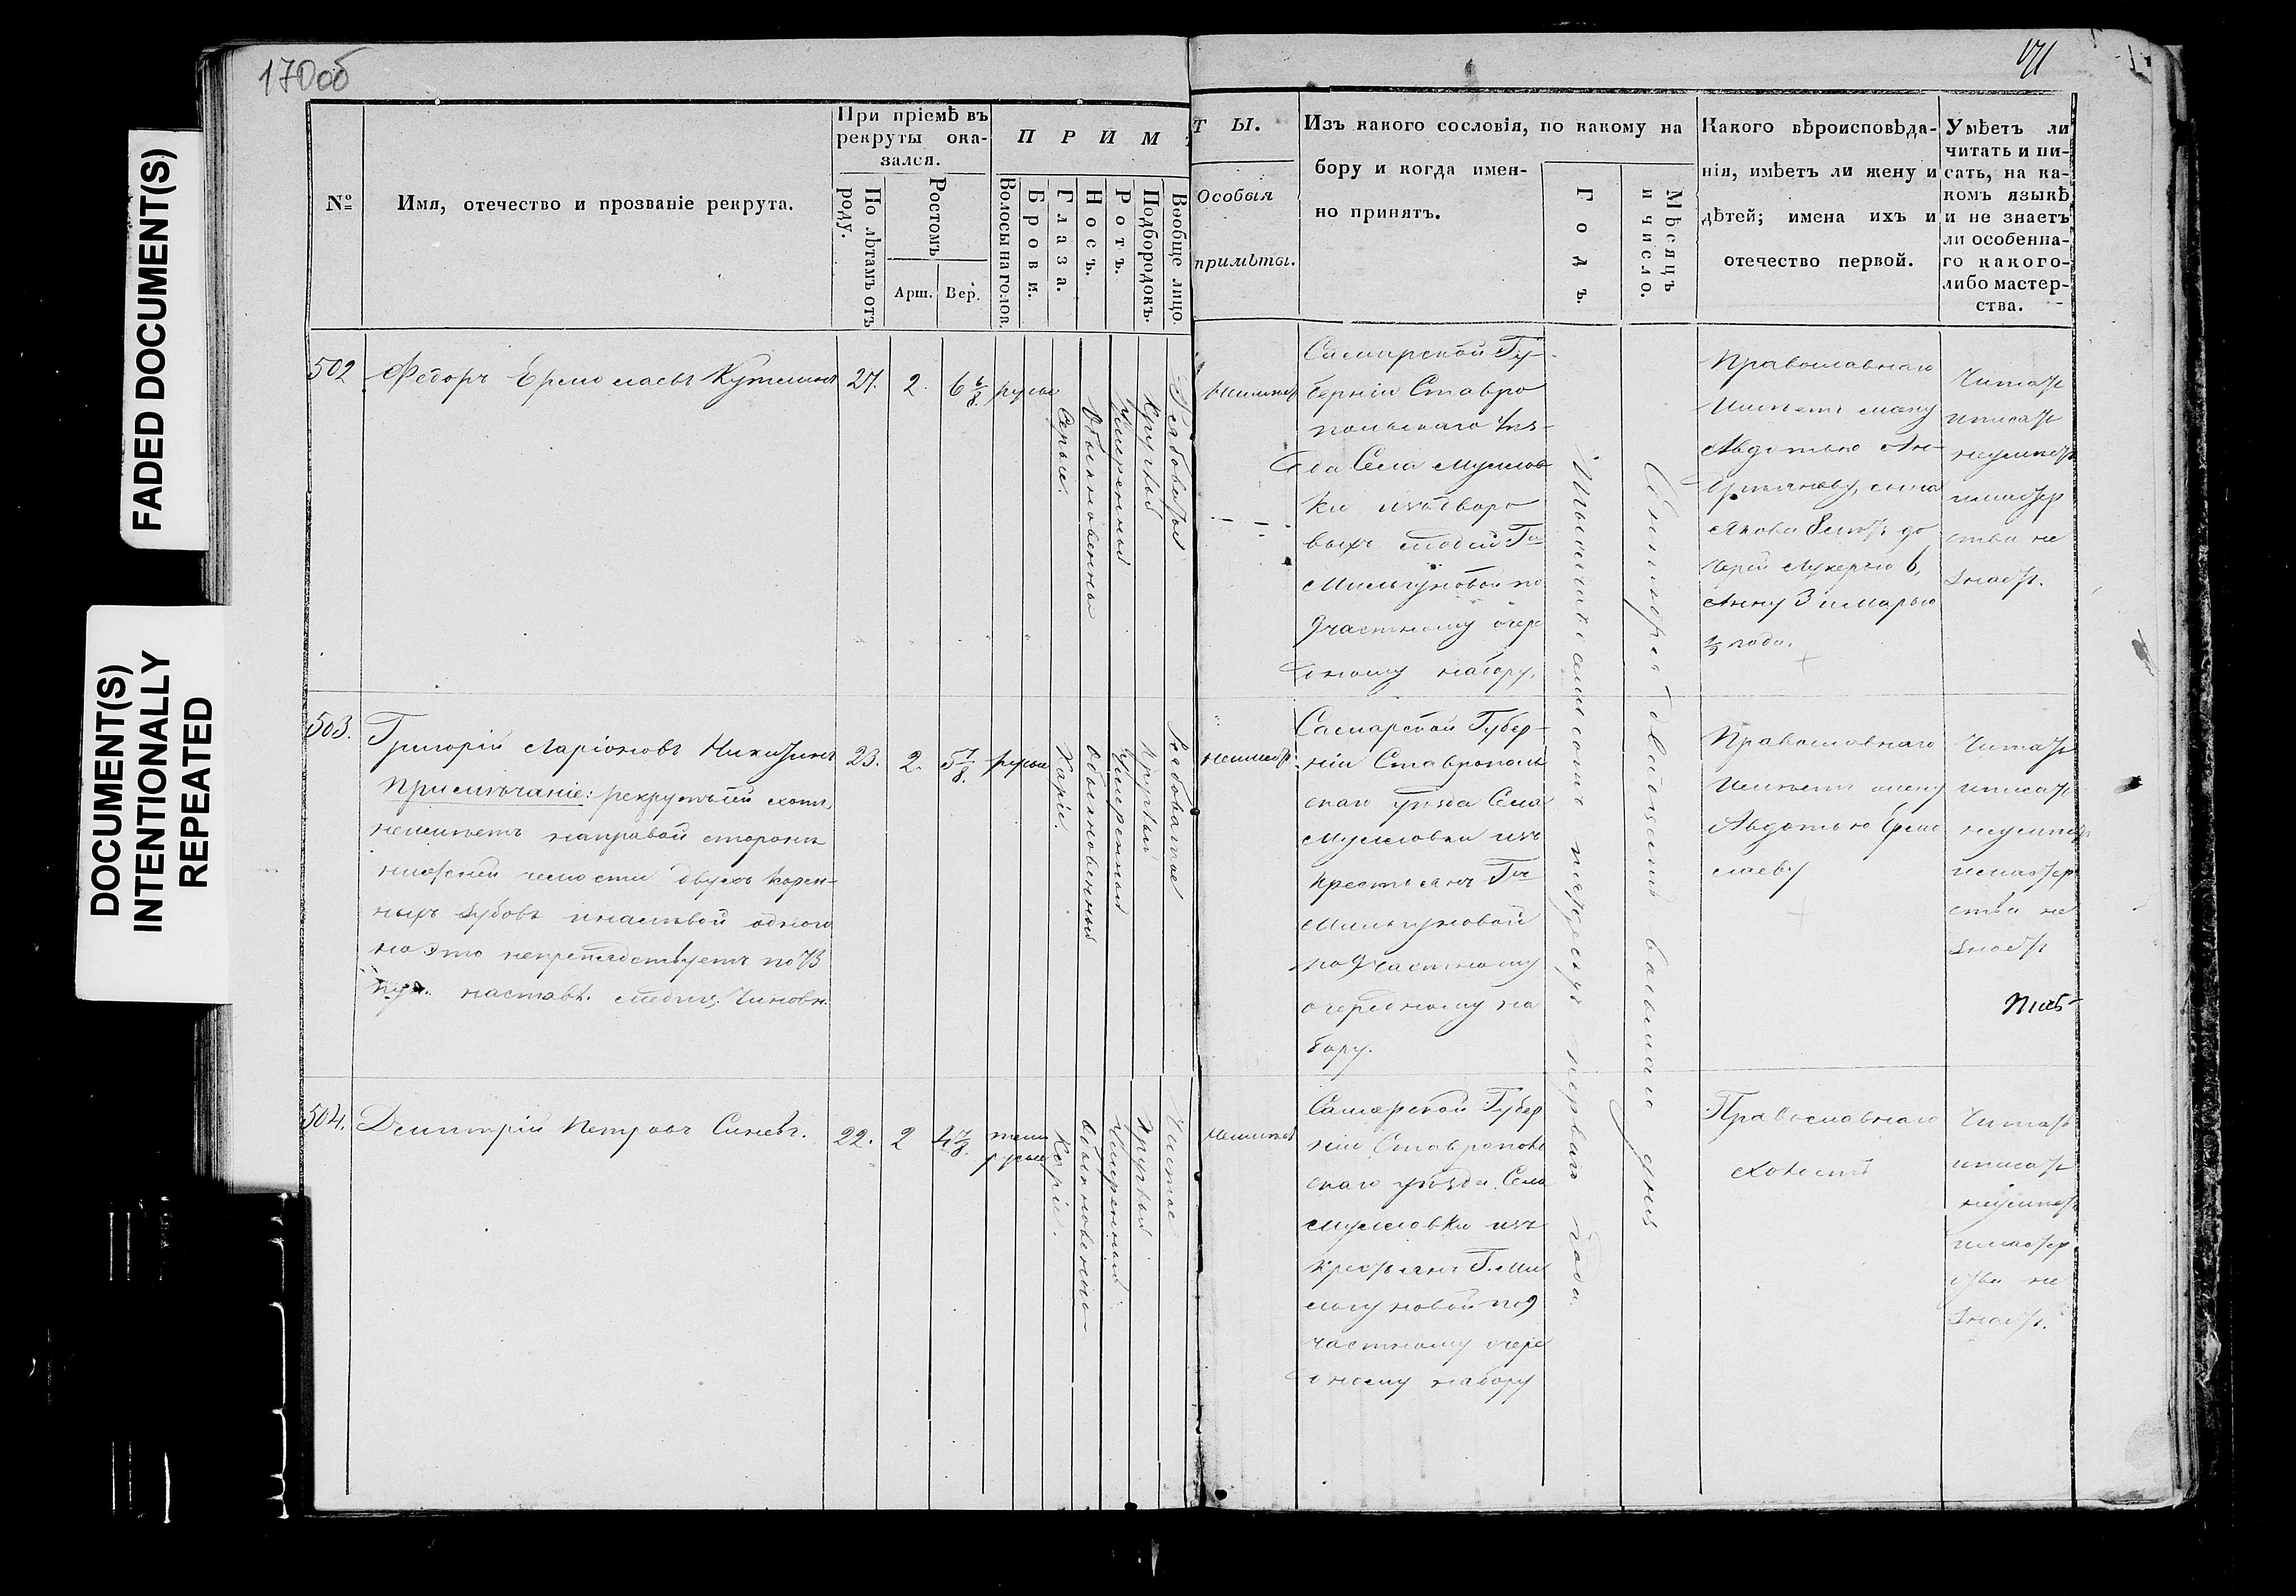 FADED DOCUMENT(S)
DOCUMENT(S)
INTENTIONALLY
REPEATED
170об
171
№
Имя, отечество и прозваніе рекрута.
При пріемѣ въ
рекруты ока-
зался.
По лѣтамъ отъ
роду.
Ростомъ
Арш.
Вер.
ПРИМ
Волосы на голов.
Брови.
Глаза.
Носъ.
Ротъ.
Подбородокъ.
Вообще лицо.
ТЫ.
Особыя
примѣты.
Изъ какого сословія, по какому на
бору и когда имен-
но принятъ.
Годъ.
Мѣсяцъ
и число.
Какого вѣроисповѣда-
нія, имѣетъ ли жену и
дѣтей; имена ихъ и
отечество первой.
Умѣетъ ли
читать и пи-
сать, на ка-
комъ языкѣ
и не знаетъ
ли особенна-
го какого-
либо мастер-
ства.
502
Федоръ Ермолаевъ
27.
2.
6 6/8.
русые
Сѣрые.
Обыкновенный
Умеренный
Круглый
Рябоватое
Самарской Гу-
берніи Ставро
польскаго Уѣз-
да Села Муллов
ки изъ дворо
выхъ людей Гж
Мильгуновой по
9 частному очере
дному набору.
Тысяча восемьсотъ пятдесятъ перваго года.
Сентября двадцать восьмаго дня
Православнаго
Имѣетъ жену
Авдотью Ан-
дреянову, сына
Якова 8 лѣтъ до
черей Лукерью 6,
Анну 3 и Марью
года.
Читать
и писать
неумѣетъ
и мастер
ства не
знаетъ.
503.
Григорій Ларіоновъ Никитинъ
Примѣчаніе: рекрутъ сей хотя
неимѣетъ на правой сторонѣ
нижней челюсти двухъ корен-
ныхъ зубовъ и на лѣвой одного
но это непрепятствуетъ по 73
пун. наставл. медиц. Чиновн.
23.
2.
5 7/8.
русые
Каріе.
Обыкновенный
Умеренный
Круглый
Рябоватое
неимѣетъ.
Самарской Губер-
ніи Ставрополь
скаго уѣзда Села
Мулловки изъ
крестьянъ Гжи
Мильгуновой
по 9 частному
очередному на
бору.
Православнаго
Имѣетъ жену
Авдотью Ермо
лаеву
Читать
и писать
неумѣетъ
и мастер
ства не
знаетъ
504.
Дмитрій Петровъ Синевъ.
22.
2
4 7/8.
темно
русые
Каріе.
Обыкновенный
Умеренный
Круглый
Чистое
неимѣетъ
Самарской Губер
ніи Ставрополь
скаго уѣзда Села
Мулловки изъ
крестьянъ Г. Ми
льгуновой по 9
частному очере
дному набору
Православнаго
Холостъ
Читать
и писать
неумѣетъ
и мастер
ства не
знаетъ.